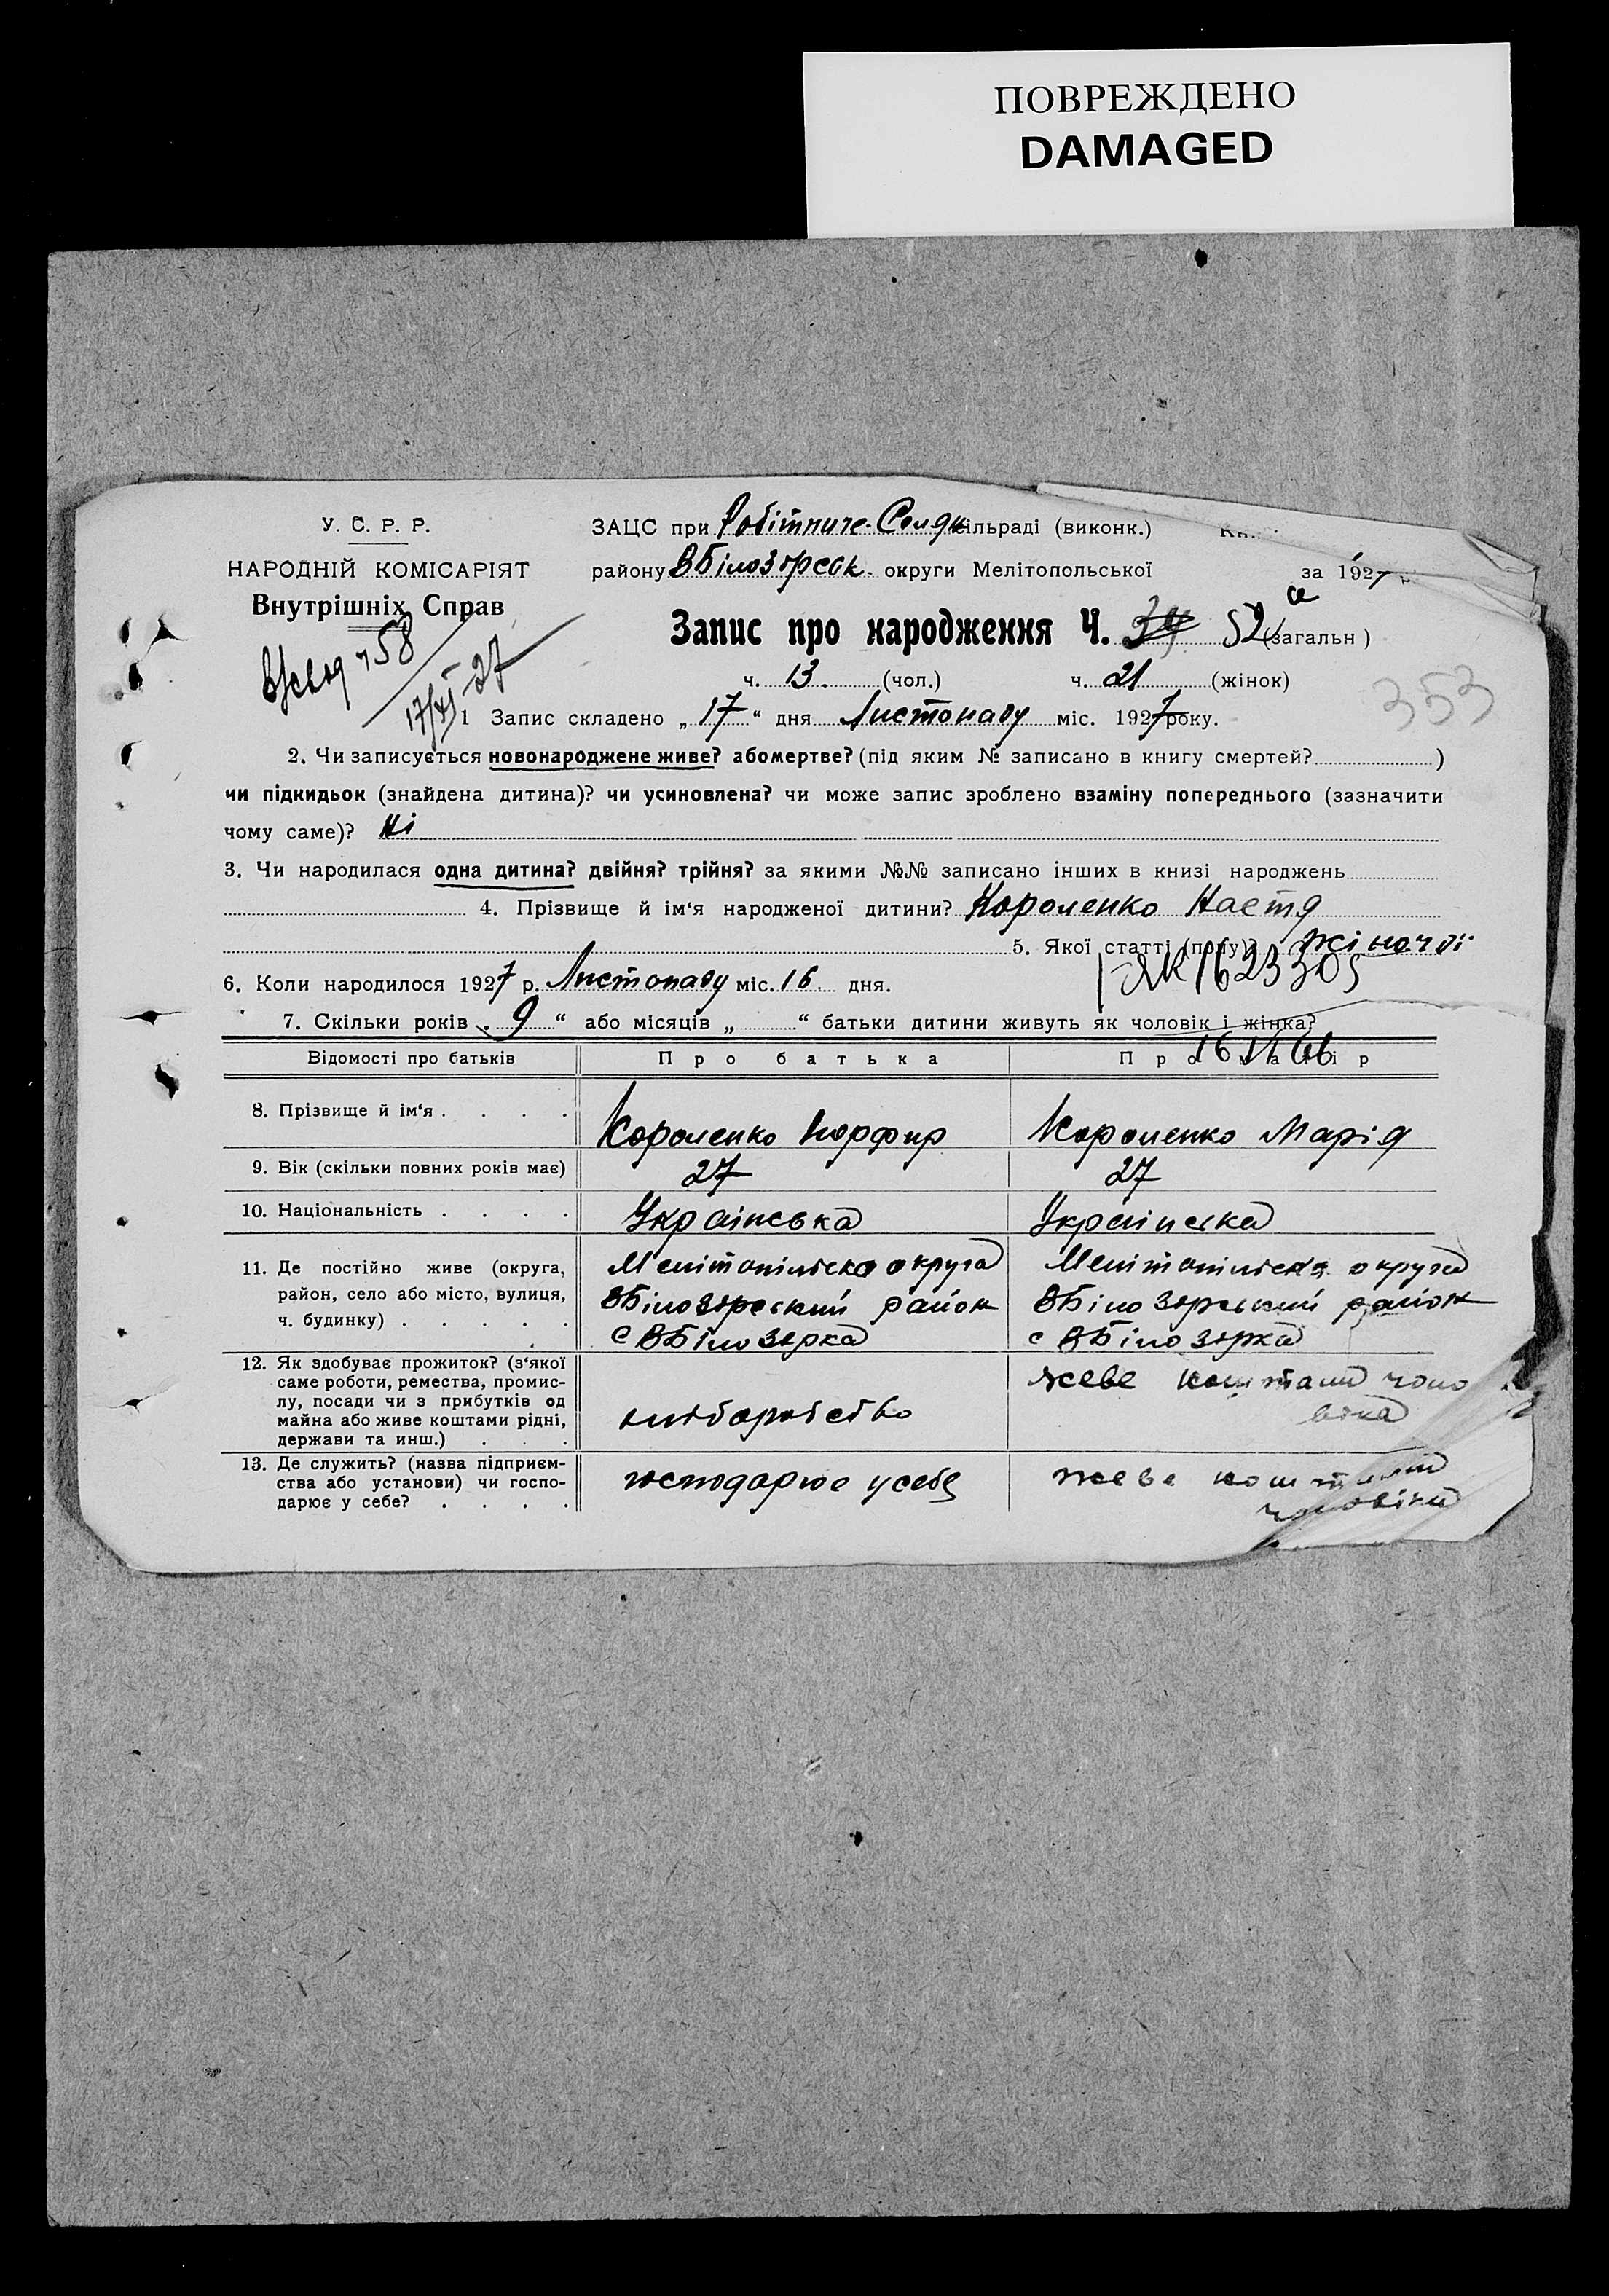 ПОВРЕЖДЕНО
DAMAGED
У. С. Р. Р.
НАРОДНІЙ КОМІСАРІЯТ
Внутрішніх Справ
ч 58
17/XI-27
ЗАЦС при сільраді (виконк.)
району ВБілозерськ. округи Мелітопольської за 1927
Запис про народження Ч. 52 (загальн)
ч. 13. (чол.) ч. 21 (жінок)
353
1 Запис складено „17“ дня Листопаду міс. 1927 року.
2. Чи записується новонароджене живе? абомертве? (під яким № записано в книгу смертей? )
чи підкидьок (знайдена дитина)? чи усиновлена? чи може запис зроблено взаміну попереднього (зазначити
чому саме)? Ні
3. Чи народилася одна дитина? двійня? трійня? за якими №№ записано інших в книзі народжень
4. Прізвище й ім‘я народженої дитини? Короленко Настя
5. Якої статті (полу)? жіночої
6. Коли народилося 1927 р. Листопаду міс. 16 дня.
I-ЯК 1623305
7. Скільки років „9“ або місяців „ “ батьки дитини живуть як чоловік і жінка?
Відомості про батьків Про батька Про матір
8. Прізвище й ім‘я . . . . Короленко Порфир Короленко Марія
9. Вік (скільки повних років має) 27 27
10. Національність . . . . Українська Українська
11. Де постійно живе (округа, район, село або місто, вулиця, ч. будинку) . . . . .
Мелітопільска округа Мелітопільска округа
ВБілозерский район ВБілозерский район
с ВБілозерка с ВБілозерка
12. Як здобуває прожиток? (з‘якої
саме роботи, ремества, промис-
лу, посади чи з прибутків од
майна або живе коштами рідні,
держави та инш.) . . .
хліборобство
живе коштами чоло
віка
13. Де служить? (назва підприєм-
ства або установи) чи госпо-
дарює у себе? . . . .
господарює у себе
живе коштами
чоловіка